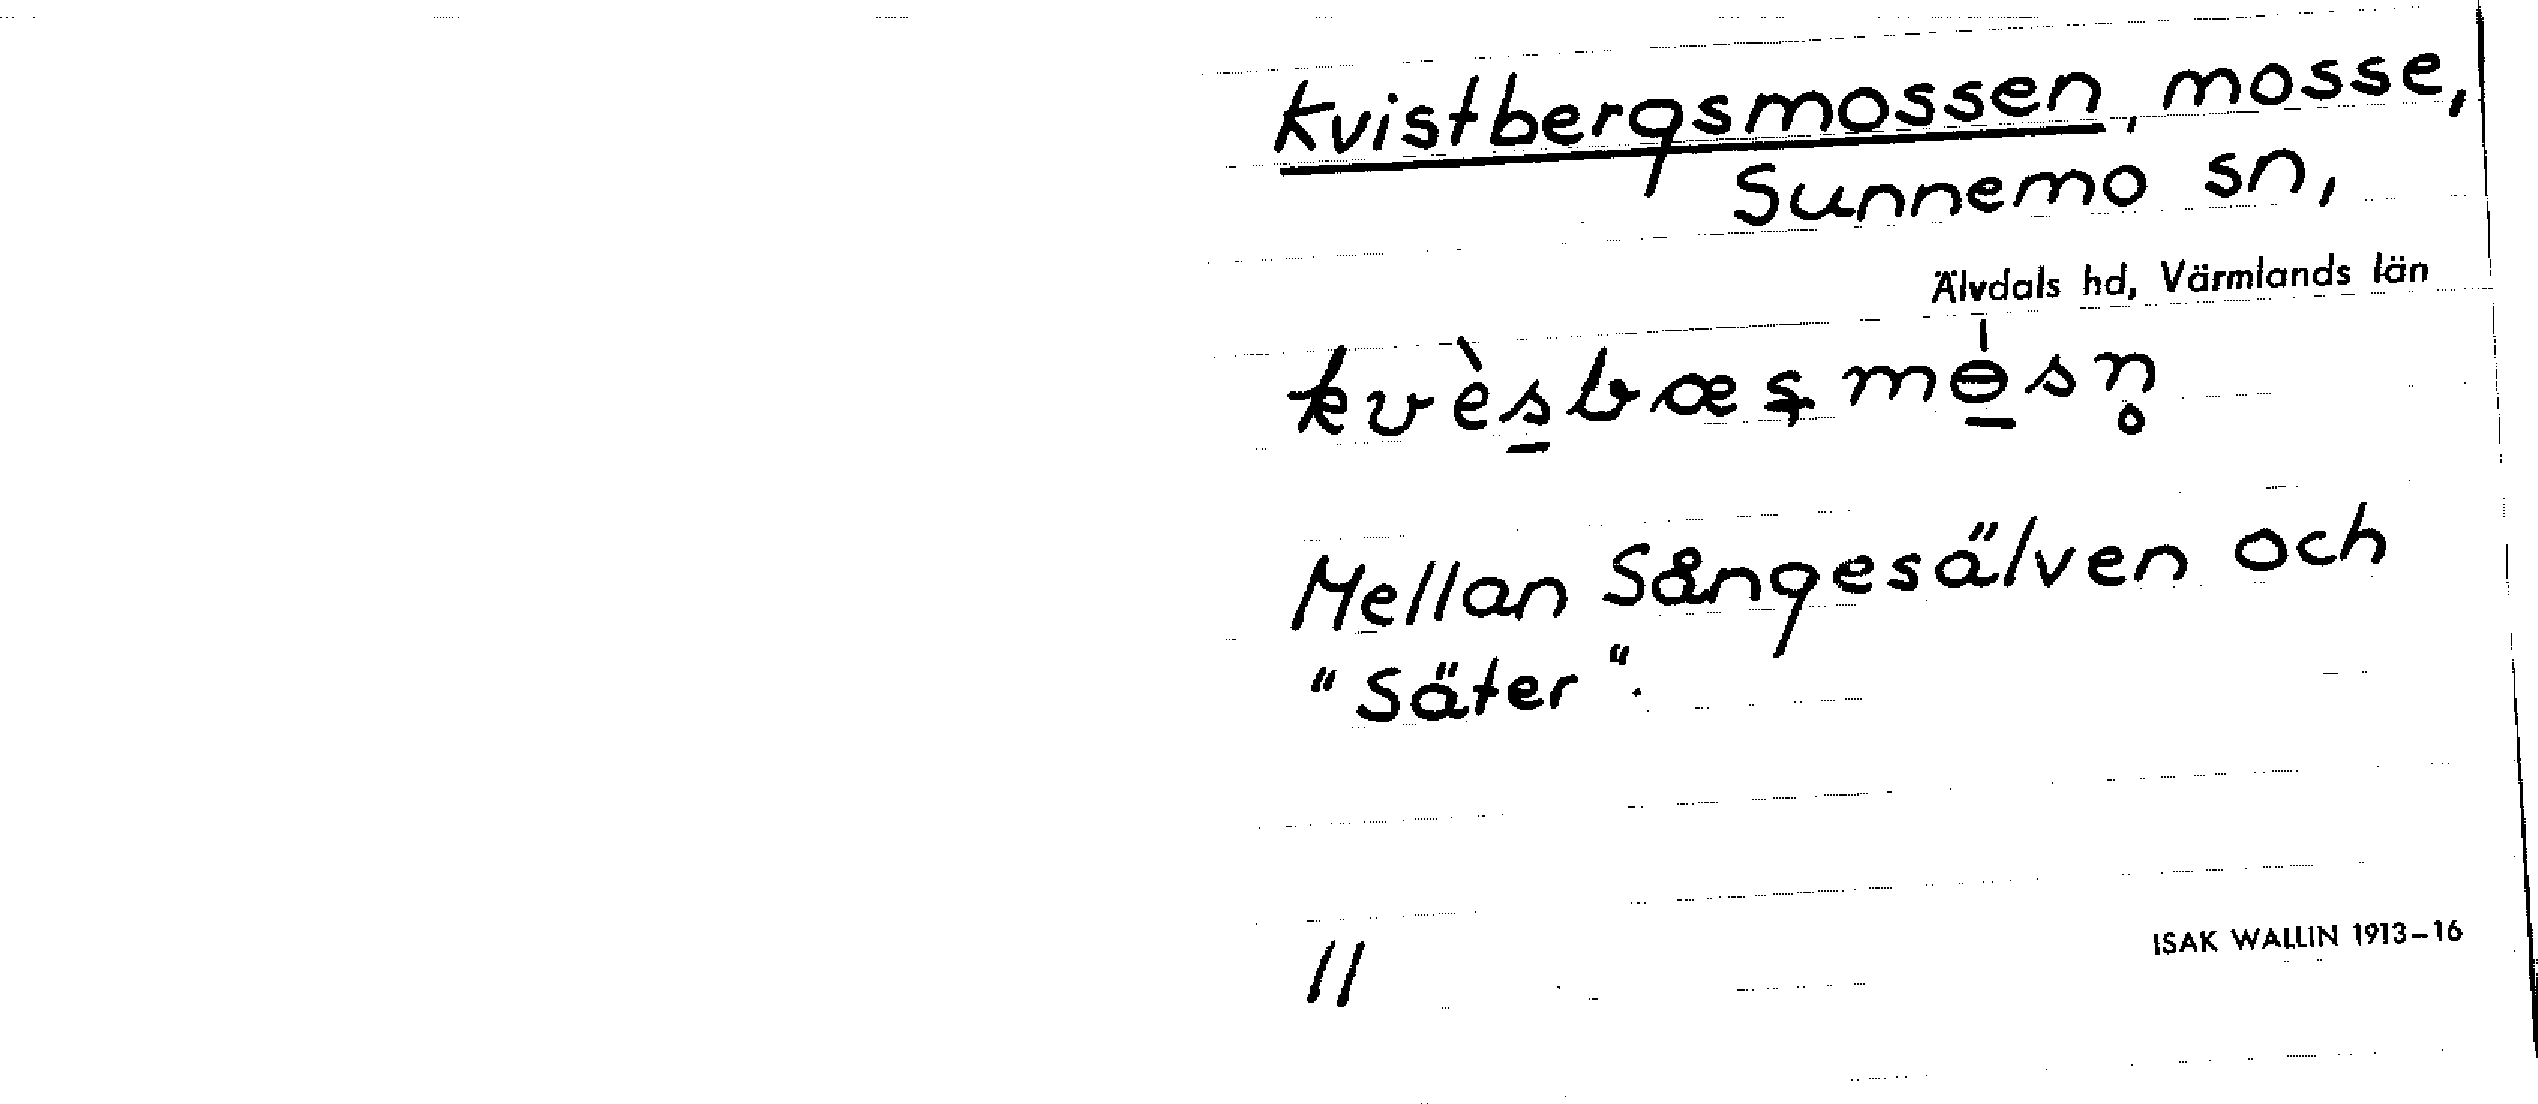 Kvistbergsmossen, mosse,
Sunnemo sn,
Älvdals hd, Värmlands län
kvès̲bæşmɵ̲́sn̥
Mellan Sångesälven och
"Säter".
11
ISAK WALLIN 1913-16